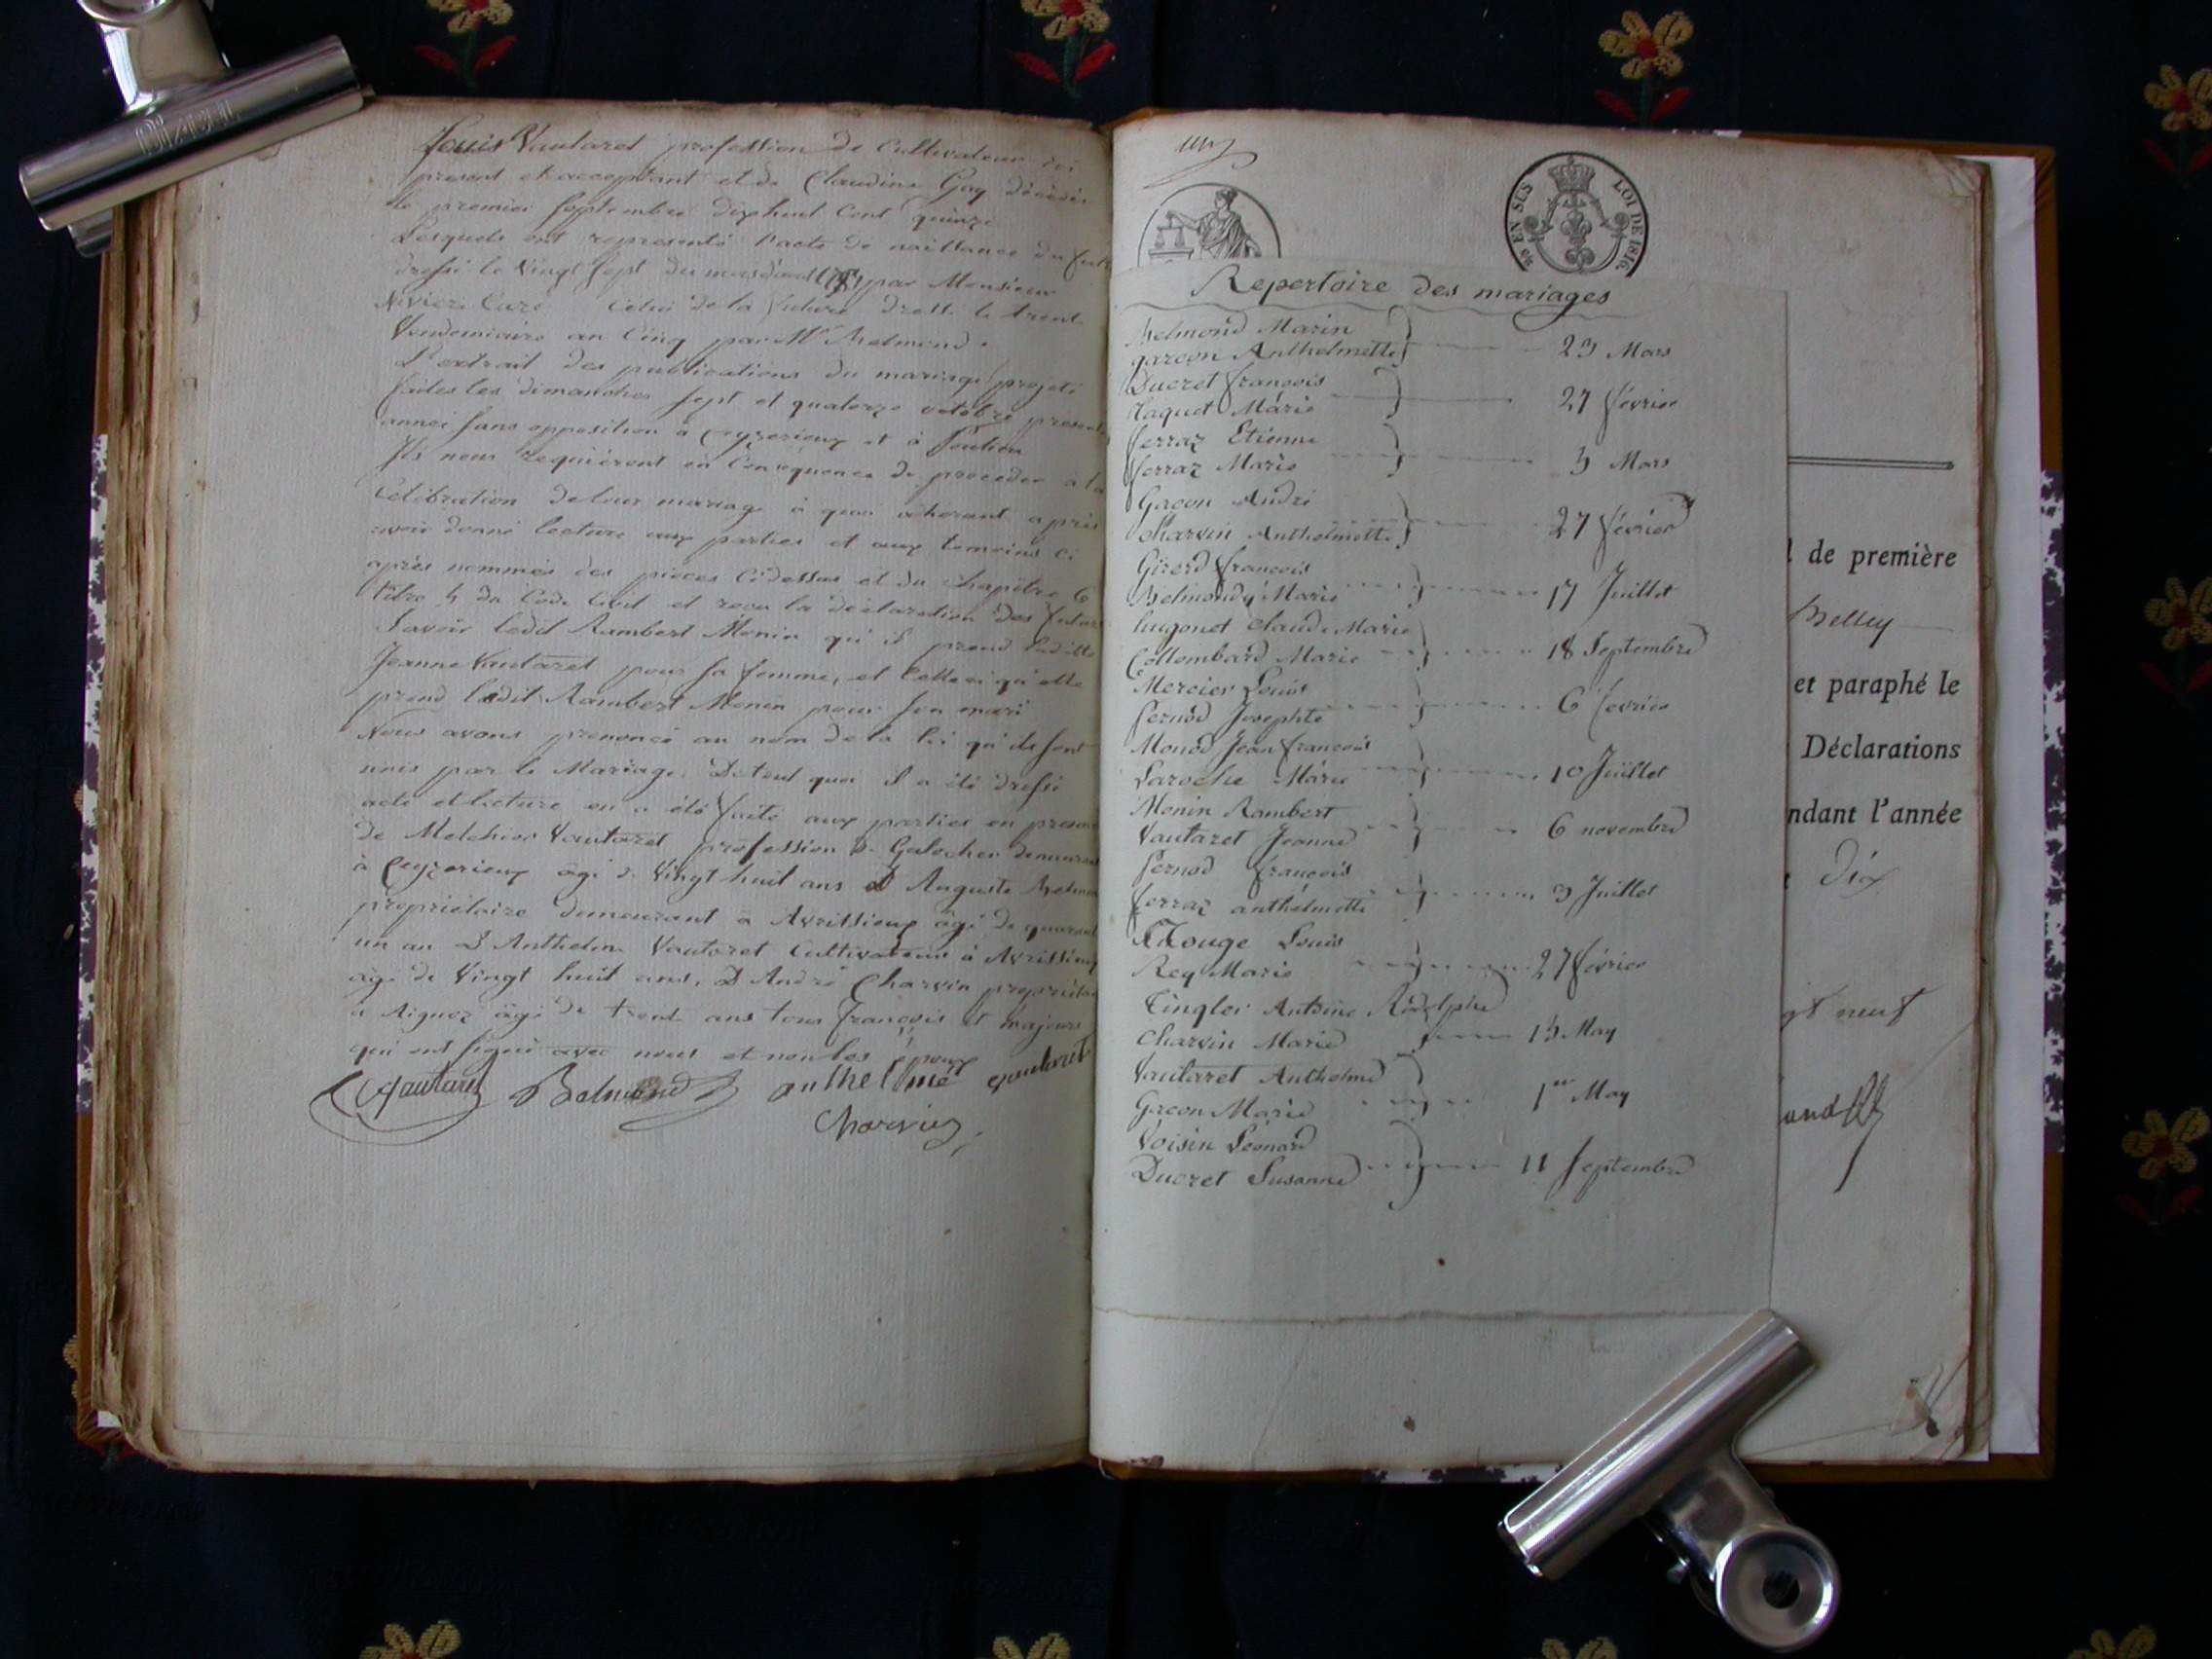 Louis Vautaret profession de Cultivateur ici
present et acceptant et de Claudine Gay décédée
le premier septembre dixhuit cent quinze
Lesquels ont représenté l'acte de naissance du futur
dressé le Vingt sept du mois d'avril par Monsieur
Curé Celui de la future dressé le trente
Vendemiaire an Cinq par Mr Belmond.
L'extrait des publications du mariage projeté
faites les dimanches sept et quatorze octobre presente
année sans opposition à Ceyzerieux et à
Ils nous requièrent en Conséquence de proceder à la
Célébration de leur mariage à quoi adherant après
avoir donné lecture aux parties et aux temoins ci
après nommés des pièces Cidessus et du chapitre 6
titre 5 du Code Civil et reçu la déclaration des futurs
Savoir ledit Rambert Monin qu'il prend ladite
Jeanne Vautaret pour sa femme, et Celle ci qu'elle
prend ledit Rambert Monin pour son mari
Nous avons prononcé au nom de la loi qu'ils sont
unis par le Mariage. De tout quoi il a été dressé
acte et lecture en a été faite aux parties en presence
de Melchior Vautaret profession de Galocher demeurant
à Ceyzerieux âgé de Vingt huit ans D Auguste Belmond
propriétaire demeurant à Avrissieux âgé de quarante
un an D Anthelme Vautaret Cultivateur à Avrissieux
âgé de Vingt huit ans, D André Charvin propriétaire
à Aignoz âgé de trente ans tous françois et majours
qui ont signé avec nous et non les époux
Vautaret Belmond anthelme vautaret
Charvin
un
EN SUS LOI DE 1816.
Repertoire des mariages
Belmond Marin
garçon Anthelmette 23 Mars
Ducret françois
Maquet Marie 27 février
ferraz Etienne
ferraz Marie 5 Mars
Gacon André
Charvin Anthelmette 27 février
Girerd françois
Belmond Marie 17 Juillet
hugonet Claude Marie
Collombard Marie 18 Septembre
Mercier Louis
pernod Josephte 6 fevrier
Monod Jean françois
Laroche Marie 10 Juillet
Monin Rambert
Vautaret Jeanne 6 novembre
pernod françois
ferraz anthelmette 3 Juillet
Rouge Louis
Rey Marie 27 février
Tingler Antoine Rodolphe
Charvin Marie 15 May
Vautaret Anthelme
Gacon Marie 1er May
Voisin Léonard
Ducret Susanne 11 septembre
de première
Belley
et paraphé le
Déclarations
ndant l'année
Dix
gt neuf